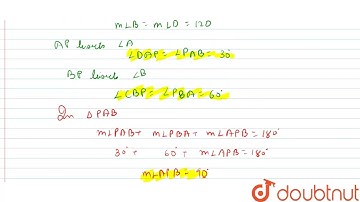 m∠B = m∠D = 120
AP bisects ∠A
∠DAP = ∠PAB = 30°
BP bisects ∠B
∠CBP = ∠PBA = 60°
In △PAB
m∠PAB + m∠PBA + m∠APB = 180°
30° + 60° + m∠APB = 180°
m∠APB = 90°
doubtnut